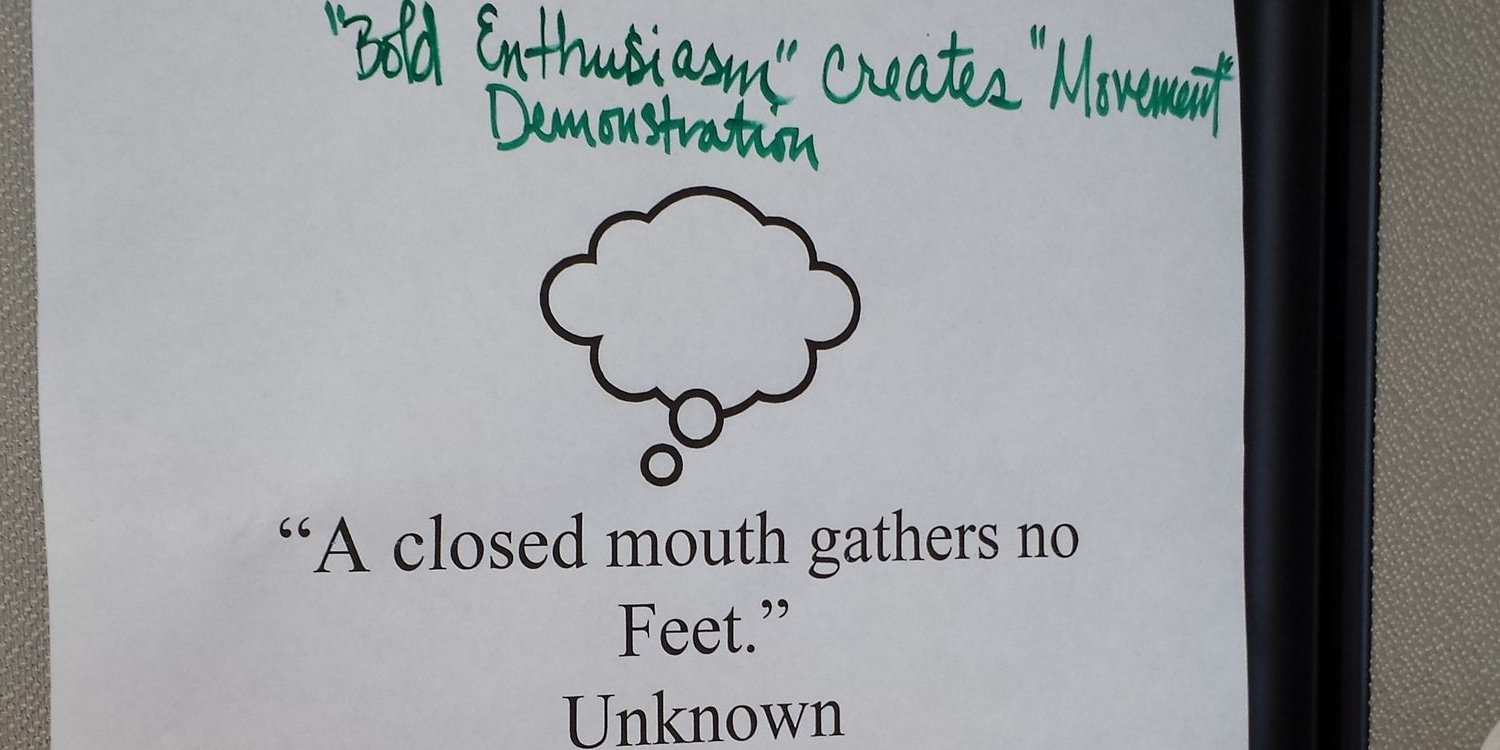 "Bold Enthusiasm" creates "Movement"
Demonstration
“A closed mouth gathers no
Feet.”
Unknown